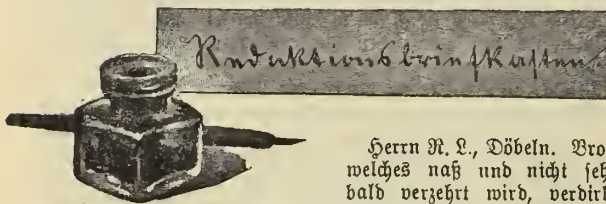 Redaktionsbriefkasten
Herrn R. L., Döbeln. Bro
welches naß und nicht seh
bald verzehrt wird, verdirb